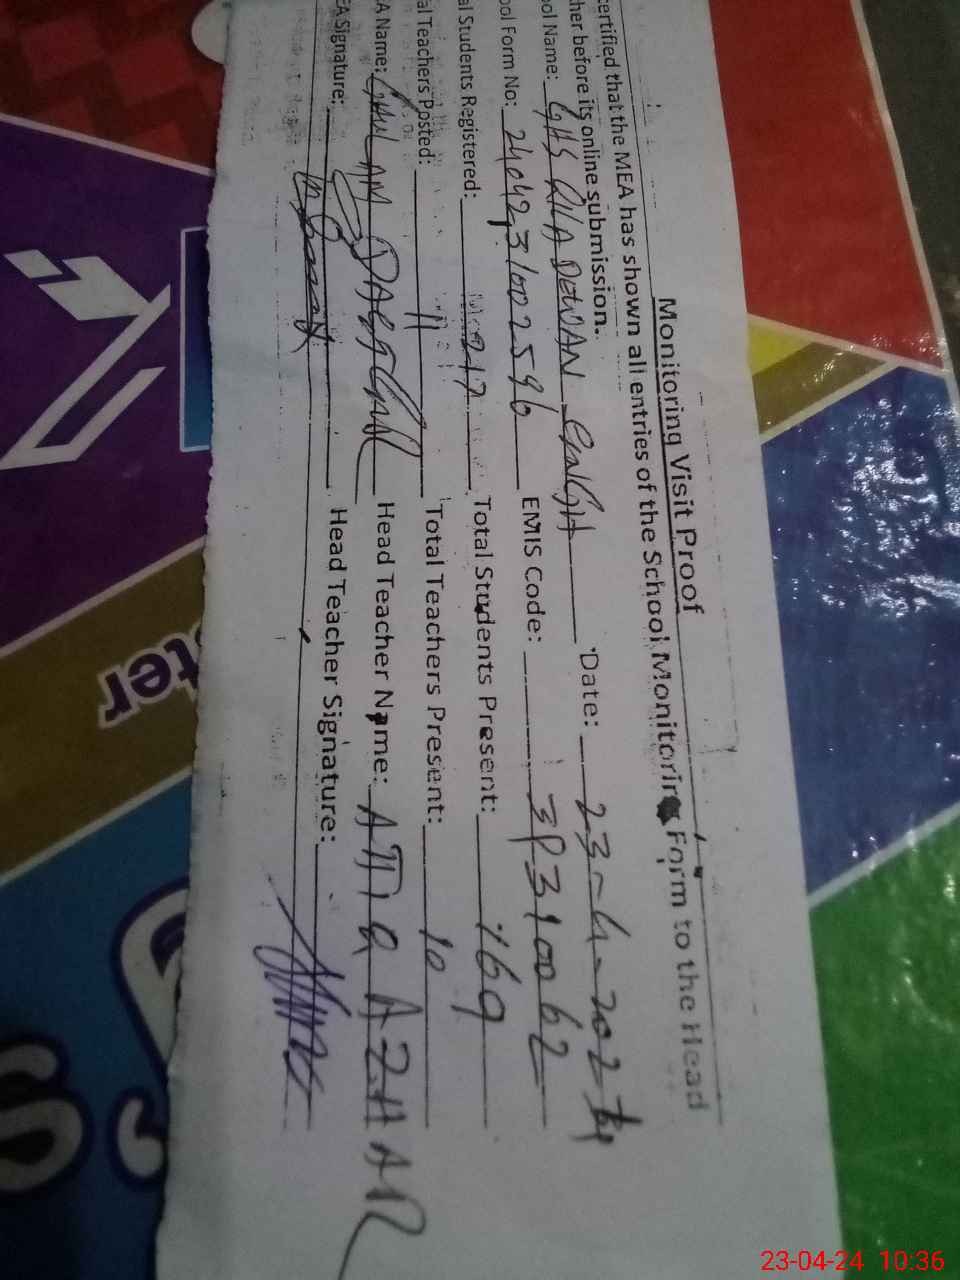 Monitoring Visit Proof
certified that the MEA has shown all entries of the School Monitoring Form to the Head
her before its online submission.
ool Name: GHS QILA DEWAN SINGH Date: 23-4-2024
ool Form No: 24042931002596 EMIS Code: 39310062
al Students Registered: 217 Total Students Present: 169
al Teachers Posted: 11 Total Teachers Present: 10
A Name: GHULAM Head Teacher Name: ATTIQ AZHAR
EA Signature: Head Teacher Signature:
ter
23-04-24 10:36